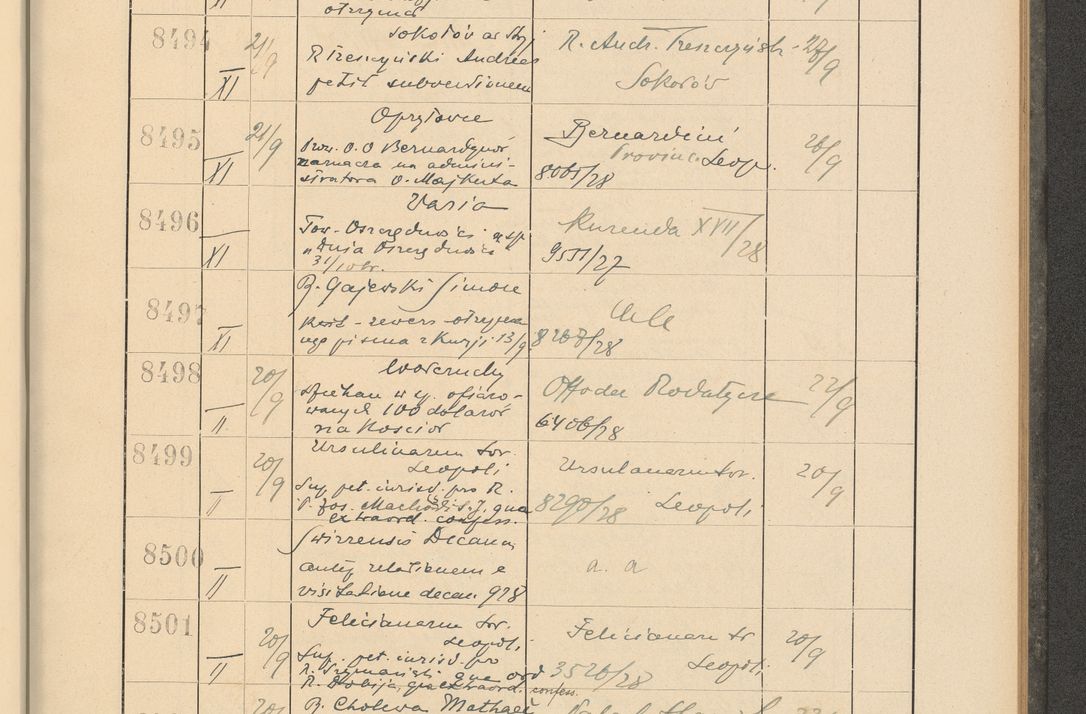 otrzymał
8494
XI
21/9
Sokołów ad Stryj
R. Trzeszczyński Andreas
petit subventionem
R. Andr. Treszczyński
Sokołów
28/9
8495
XI
21/9
Opryłowce
Prow. O.O Bernardynów
naznacza na admini-
stratora O. Majkuta
Bernardini
Provinc. Leop.
8001/28
26/9
8496
XI
Varia
Tow. Oszczędności
"Dnia Oszczędności"
31/10 br.
Kurenda XVII/28
9511/27
8497
XI
R. Gajewski Simon
rewers otrzyma-
nego pisma z Kurji 13/9
8267/28
8498
II
20/9
Dziekan w sp. ofiaro-
wanych 100 dolarów
na Kościół
Rodatycze
6406/28
22/9
8499
II
20/9
Ursulinarum Sor.
Leopoli
Sup. pet. iurisd. pro R.
P. Jos. S.J. qua
extraord. confess.
Ursulanarum Sor.
Leopoli
8290/28
20/9
8500
II
Swirzensis Decanus
relationem e
visitatione decan. 928
a. a
8501
II
20/9
Felicianarum Sor.
Leopoli
Sup. pet. iurisd. pro
R. Szymański qua ord
R. Dobija, qua extraord. confess.
Felicianarum Sr
Leopoli
3526/28
20/9
20
R. Cholewa Mathaeus